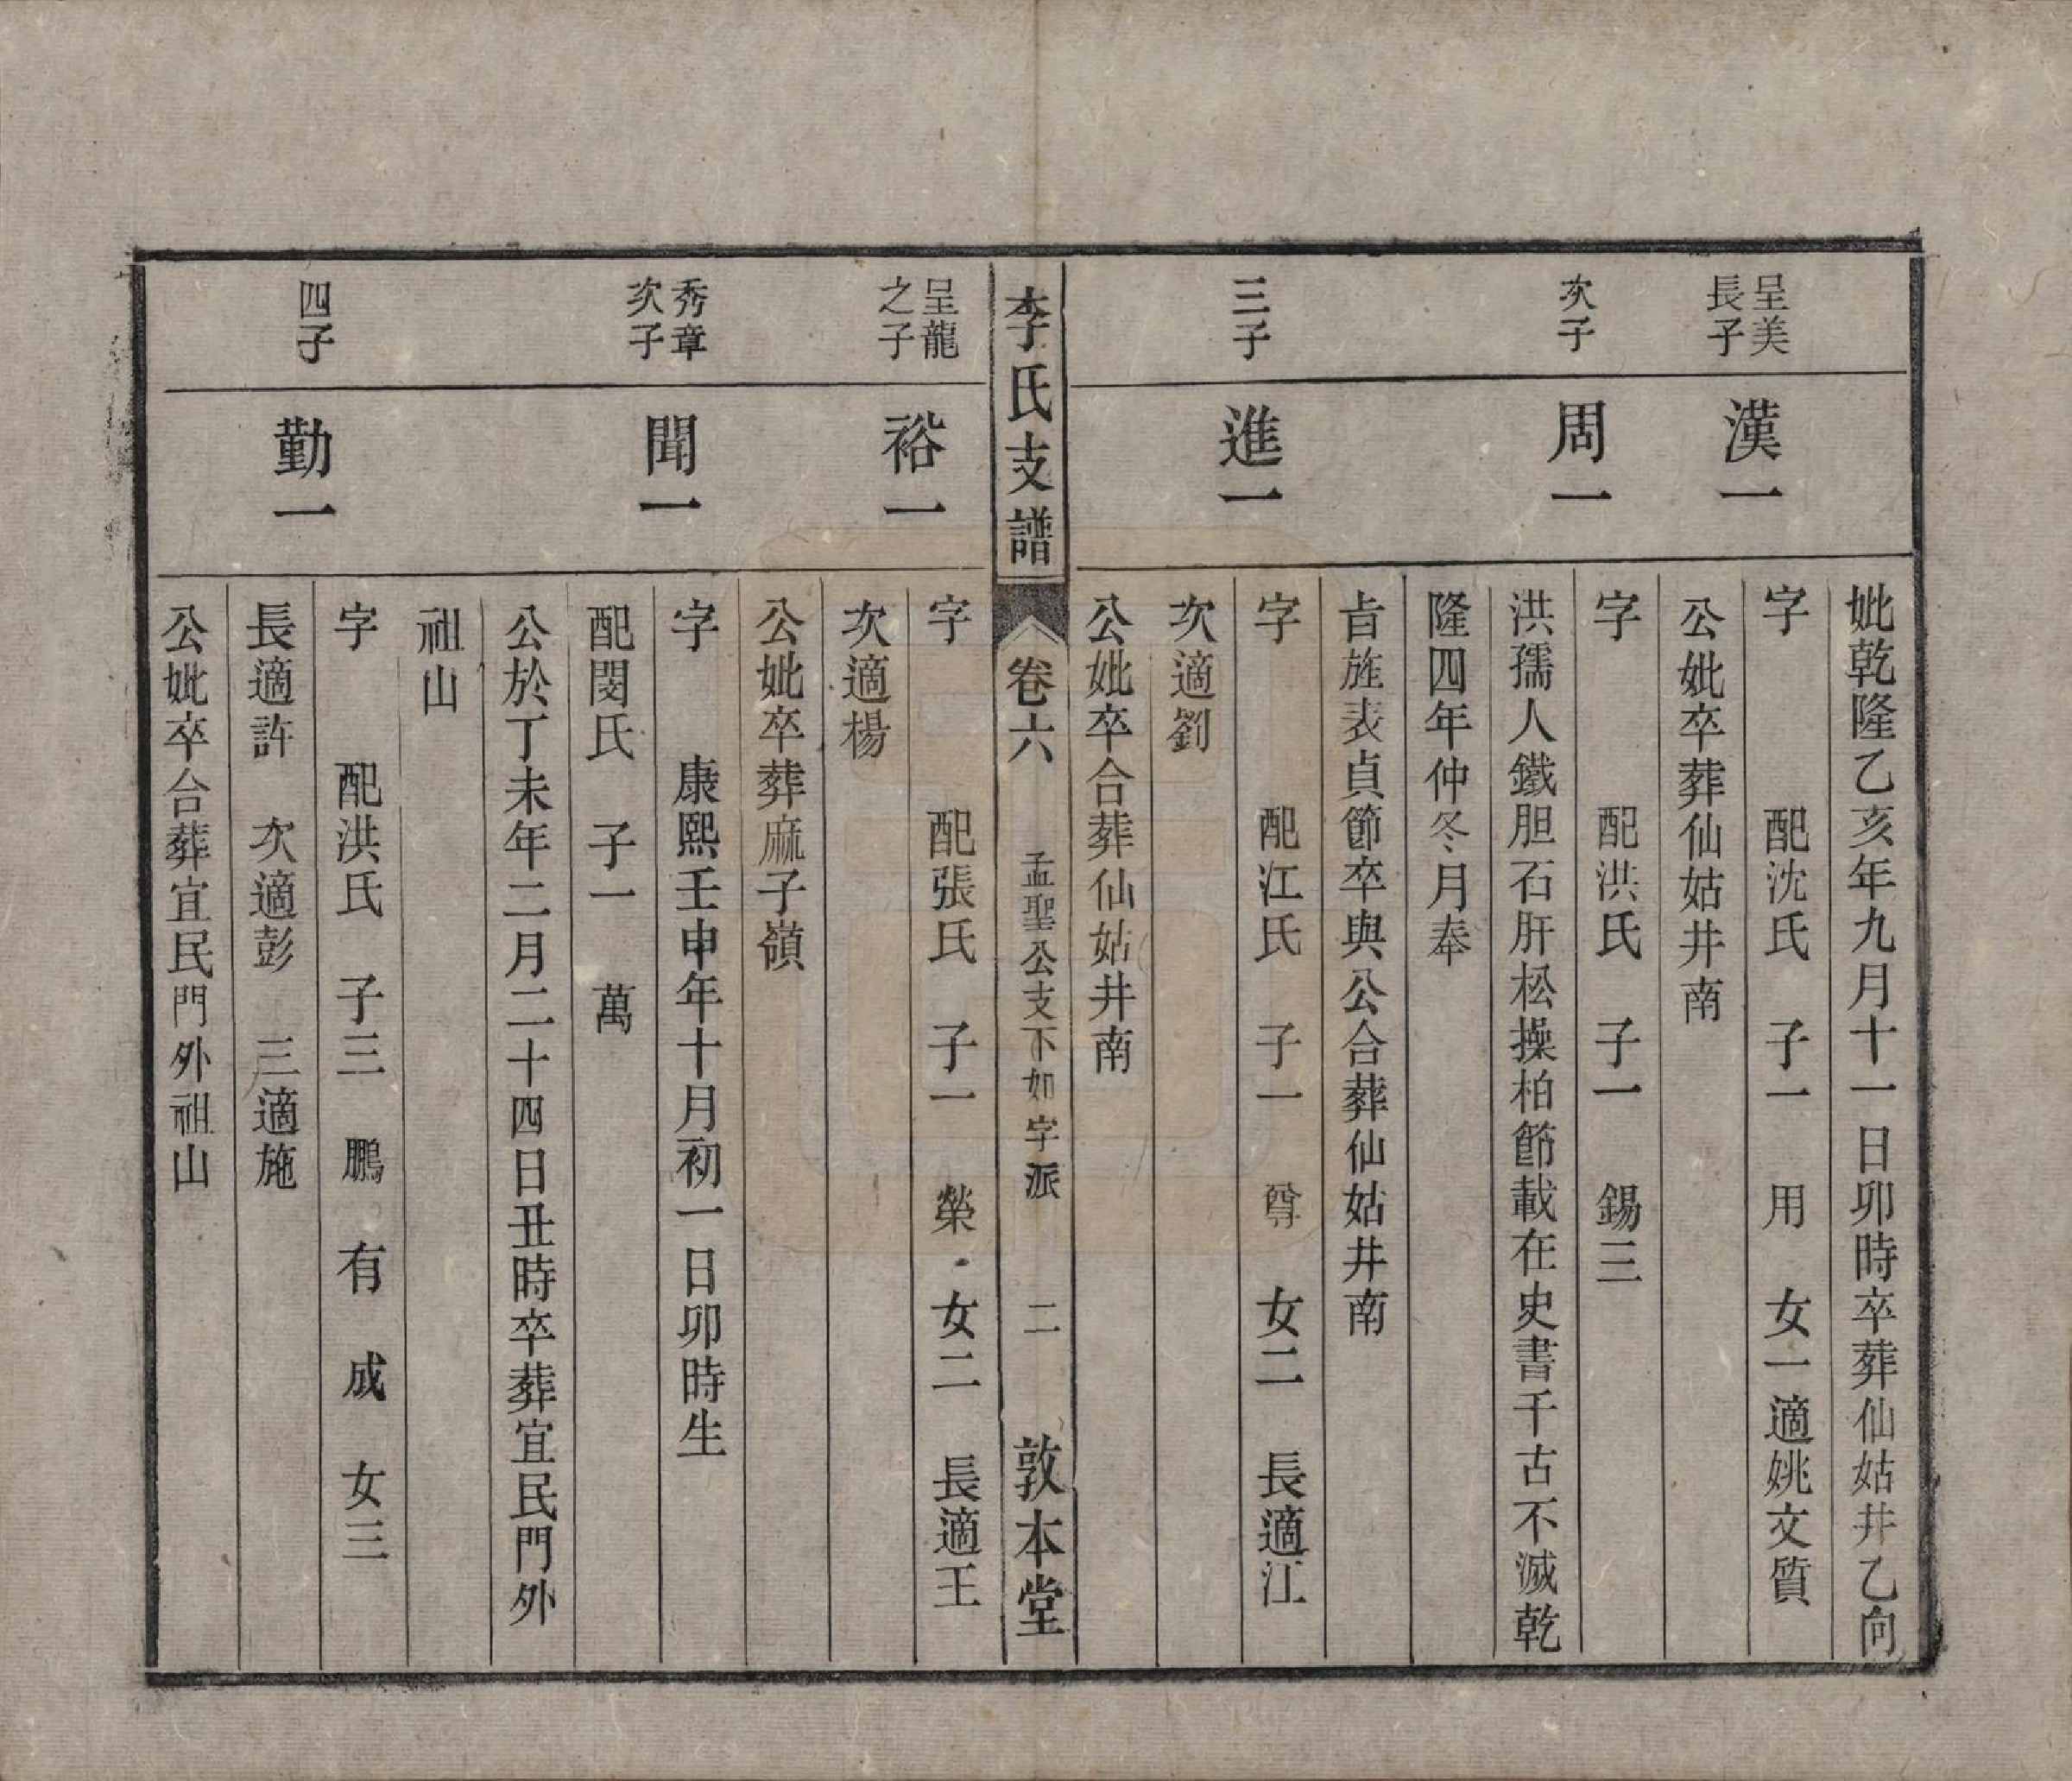 妣乾隆乙亥年九月十一日卯時卒葬仙姑井乙向
呈美
長子
漢一
字 配沈氏 子一 用 女一適姚文質
公妣卒葬仙姑井南
次子
周一
字 配洪氏 子一 錫三
洪孺人鐵胆石肝松操柏節載在史書千古不滅乾
隆四年仲冬月奉
旨旌表貞節卒與公合葬仙姑井南
三子
進一
字 配江氏 子一 尊 女二 長適江
次適劉
公妣卒合葬仙姑井南
李氏支譜 卷六 孟聖公支下如字派 二 敦本堂
呈龍
之子
裕一
字 配張氏 子一 榮 女二 長適王
次適楊
公妣卒葬麻子嶺
秀章
次子
聞一
字 康熙壬申年十月初一日卯時生
配閔氏 子一 萬
公於丁未年二月二十四日丑時卒葬宜民門外
祖山
四子
勤一
字 配洪氏 子三 鵬 有 成 女三
長適許 次適彭 三適施
公妣卒合葬宜民門外祖山